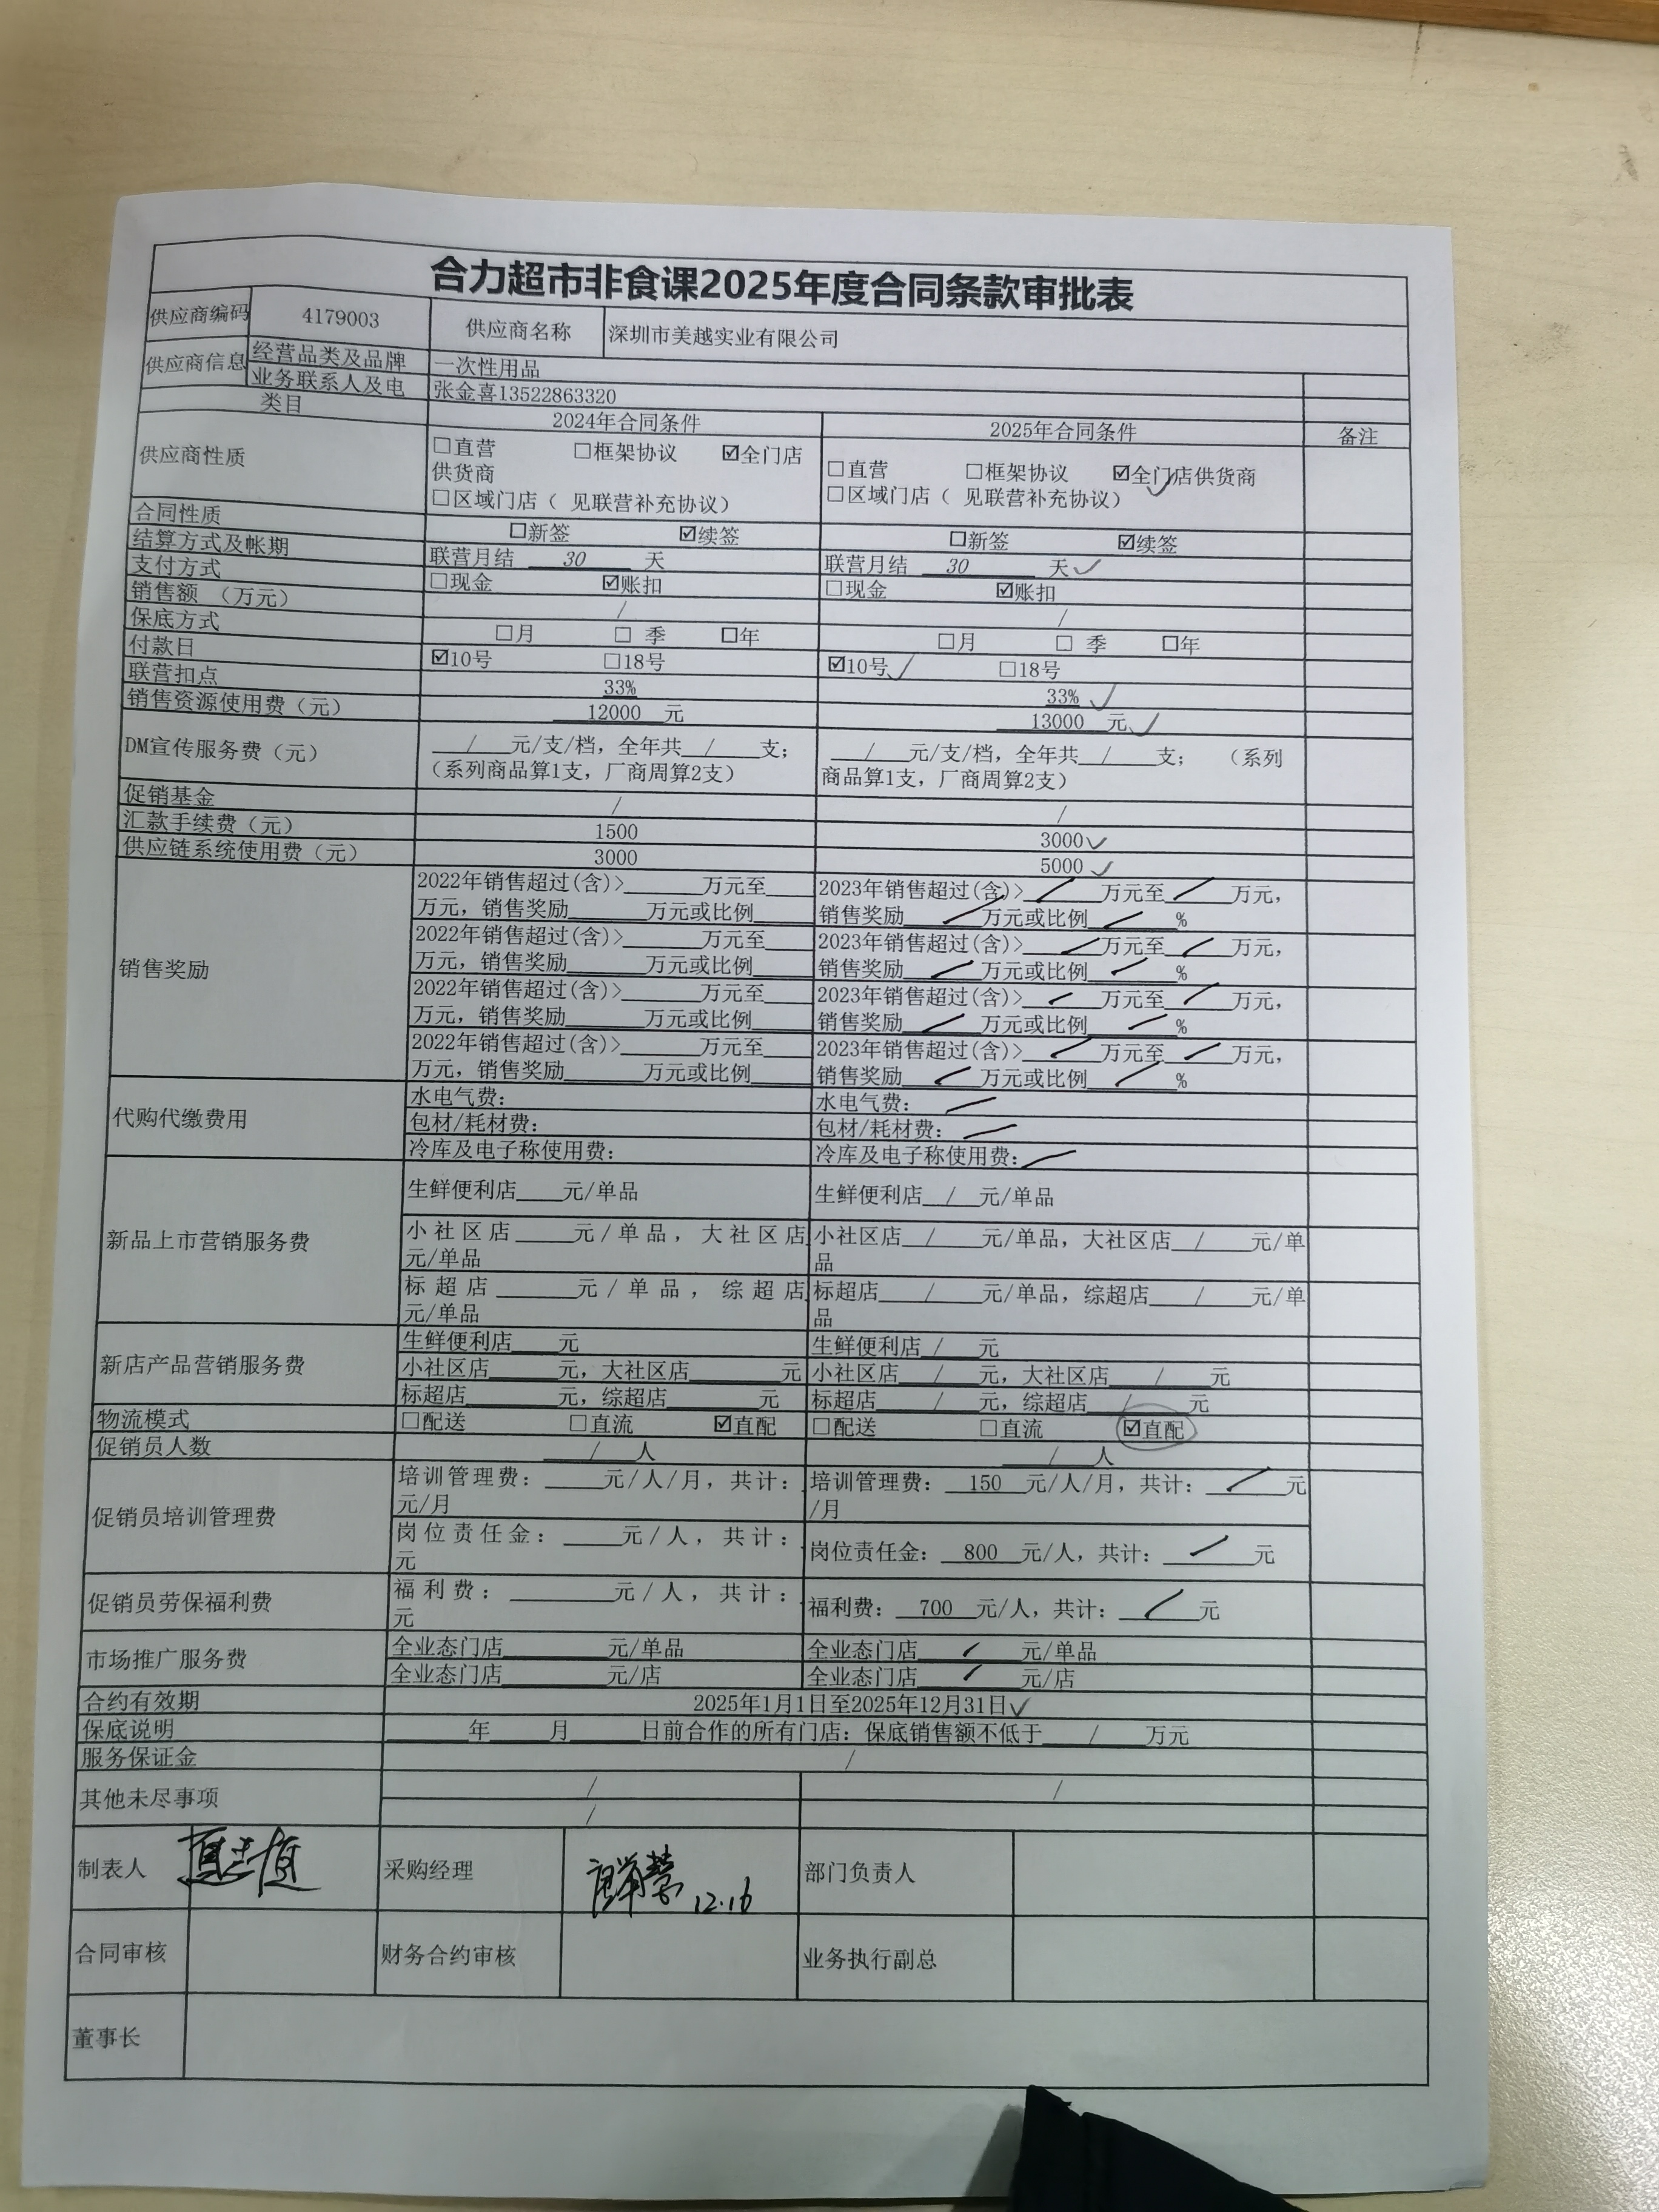 合力超市非食课2025年度合同条款审批表
供应商编码 4179003 供应商名称 深圳市美越实业有限公司
供应商信息 经营品类及品牌 一次性用品
业务联系人及电 张金喜13522863320
类目 2024年合同条件 2025年合同条件 备注
供应商性质 □直营 □框架协议 ☑全门店供货商 □直营 □框架协议 ☑全门店供货商
□区域门店（ 见联营补充协议） □区域门店（ 见联营补充协议）
合同性质 □新签 ☑续签 □新签 ☑续签
结算方式及帐期 联营月结 30 天 联营月结 30 天 ✓
支付方式 □现金 ☑账扣 □现金 ☑账扣
销售额 （万元） / /
保底方式 □月 □ 季 □年 □月 □ 季 □年
付款日 ☑10号 □18号 ☑10号 ✓ □18号
联营扣点 33% 33% ✓
销售资源使用费（元） 12000 元 13000 元 ✓
DM宣传服务费（元） / 元/支/档，全年共 / 支； / 元/支/档，全年共 / 支； （系列
（系列商品算1支，厂商周算2支） 商品算1支，厂商周算2支）
促销基金 / /
汇款手续费（元） 1500 3000 ✓
供应链系统使用费（元） 3000 5000 ✓
销售奖励
2022年销售超过(含)>______万元至____ 2023年销售超过(含)> / 万元至 / 万元，
万元，销售奖励______万元或比例____ 销售奖励 / 万元或比例 / %
2022年销售超过(含)>______万元至____ 2023年销售超过(含)> / 万元至 / 万元，
万元，销售奖励______万元或比例____ 销售奖励 / 万元或比例 / %
2022年销售超过(含)>______万元至____ 2023年销售超过(含)> / 万元至 / 万元，
万元，销售奖励______万元或比例____ 销售奖励 / 万元或比例 / %
2022年销售超过(含)>______万元至____ 2023年销售超过(含)> / 万元至 / 万元，
万元，销售奖励______万元或比例____ 销售奖励 / 万元或比例 / %
代购代缴费用
水电气费： 水电气费： /
包材/耗材费： 包材/耗材费： /
冷库及电子称使用费： 冷库及电子称使用费： /
新品上市营销服务费
生鲜便利店____元/单品 生鲜便利店 / 元/单品
小社区店____元/单品，大社区店 小社区店 / 元/单品，大社区店 / 元/单
元/单品 品
标超店______元/单品，综超店 标超店 / 元/单品，综超店 / 元/单
元/单品 品
新店产品营销服务费
生鲜便利店____元 生鲜便利店 / 元
小社区店_____元，大社区店______元 小社区店 / 元，大社区店 / 元
标超店_____元，综超店______元 标超店 / 元，综超店 / 元
物流模式 □配送 □直流 ☑直配 □配送 □直流 ☑直配
促销员人数 / 人 / 人
促销员培训管理费
培训管理费：____元/人/月，共计： 培训管理费： 150 元/人/月，共计： / 元
元/月 /月
岗位责任金：____元/人，共计： 岗位责任金： 800 元/人，共计： / 元
元
促销员劳保福利费 福利费：______元/人，共计： 福利费： 700 元/人，共计： / 元
元
市场推广服务费
全业态门店______元/单品 全业态门店 / 元/单品
全业态门店______元/店 全业态门店 / 元/店
合约有效期 2025年1月1日至2025年12月31日 ✓
保底说明 ______年____月_____日前合作的所有门店：保底销售额不低于 / 万元
服务保证金 /
其他未尽事项 / /
/
制表人 采购经理 12.16 部门负责人
合同审核 财务合约审核 业务执行副总
董事长